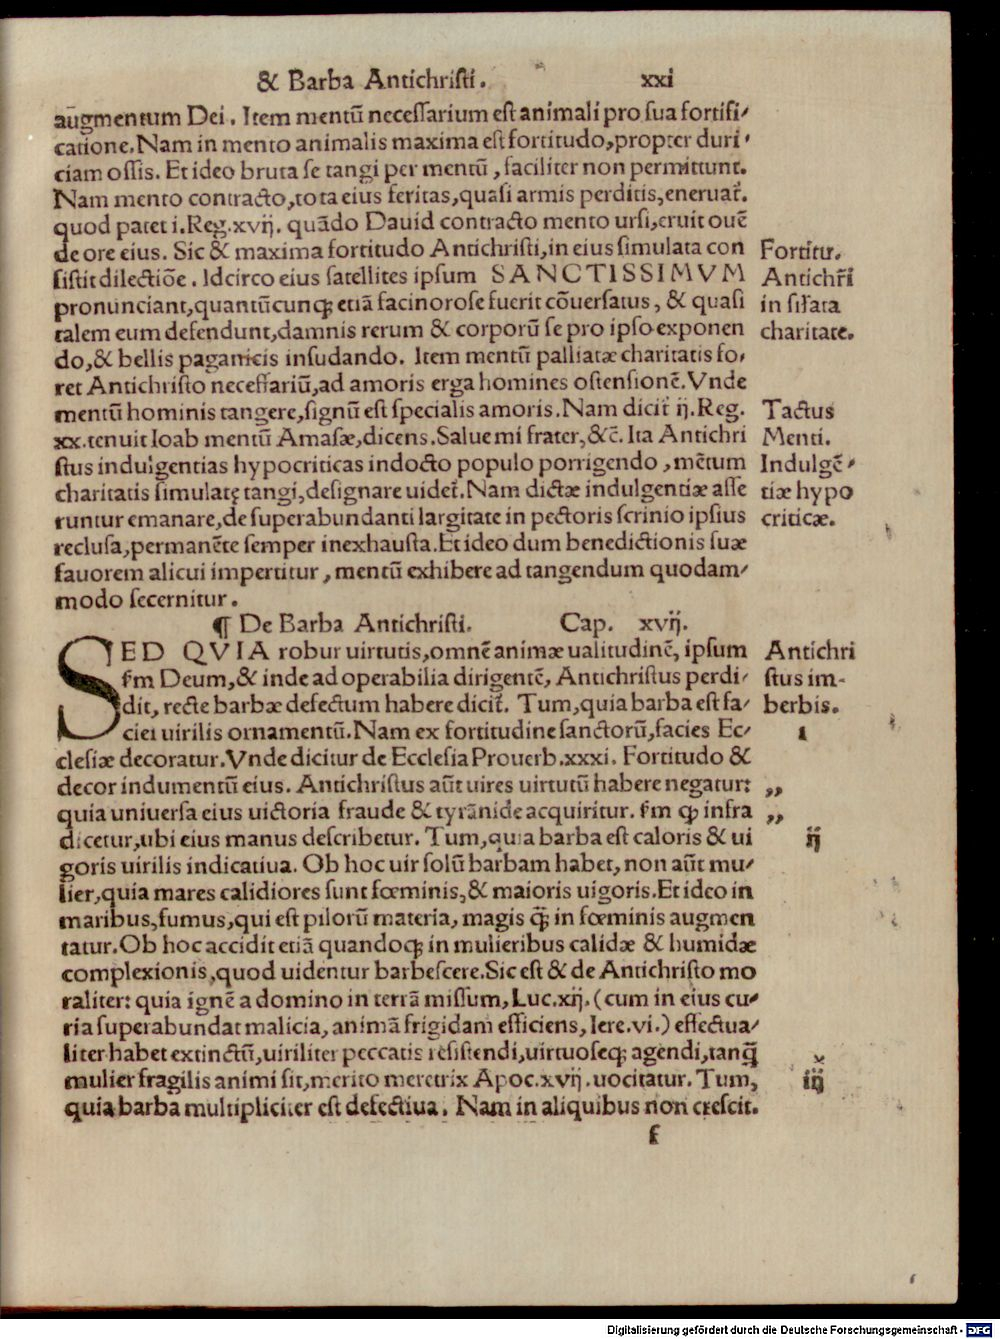 & Barba Antichristi. xxi
augmentum Dei. Item mentū necessarium est animali pro sua fortifi⸗
catione. Nam in mento animalis maxima est fortitudo, propter duri⸗
ciam ossis. Et ideo bruta se tangi per mentū, faciliter non permittunt.
Nam mento contracto, tota eius feritas, quasi armis perditis, eneruat̃.
quod patet i. Reg. xvij. quādo Dauid contracto mento ursi, eruit ouē
de ore eius. Sic & maxima fortitudo Antichristi, in eius simulata con
sistit dilectiōe. Idcirco eius satellites ipsum SANCTISSIMVM
pronunciant, quantūcunqꝫ etiā facinorose fuerit cōuersatus, & quasi
talem eum defendunt, damnis rerum & corporū se pro ipso exponen
do, & bellis paganicis insudando. Item mentū palliatæ charitatis fo⸗
ret Antichristo necessariū, ad amoris erga homines ostensionē. Vnde
mentū hominis tangere, signū est specialis amoris. Nam dicit̃ ij. Reg.
xx. tenuit Ioab mentū Amasæ, dicens. Salue mi frater, &c̄. Ita Antichri
stus indulgentias hypocriticas indocto populo porrigendo, mētum
charitatis simulatę tangi, designare uidet̃. Nam dictæ indulgentiæ asse
runtur emanare, de superabundanti largitate in pectoris scrinio ipsius
reclusa, permanēte semper inexhausta. Et ideo dum benedictionis suæ
fauorem alicui impertitur, mentū exhibere ad tangendum quodam⸗
modo secernitur.
Fortitu.
Antichr̃i
in sil̃ata
charitate.
Tactus
Menti.
Indulgē⸗
tiæ hypo
criticæ.
¶ De Barba Antichristi. Cap. xvij.
SED QVIA robur uirtutis, omnē animæ ualitudinē, ipsum
sm̄ Deum, & inde ad operabilia dirigentē, Antichristus perdi⸗
dit, recte barbæ defectum habere dicit̃. Tum, quia barba est fa⸗
ciei uirilis ornamentū. Nam ex fortitudine sanctorū, facies Ec⸗
clesiæ decoratur. Vnde dicitur de Ecclesia Prouerb. xxxi. Fortitudo &
decor indumentū eius. Antichristus aūt uires uirtutū habere negatur:
quia uniuersa eius uictoria fraude & tyrānide acquiritur. sm̄ ꝙ infra
dicetur, ubi eius manus describetur. Tum, quia barba est caloris & ui
goris uirilis indicatiua. Ob hoc uir solū barbam habet, non aūt mu⸗
lier, quia mares calidiores sunt fœminis, & maioris uigoris. Et ideo in
maribus, fumus, qui est pilorū materia, magis q̄ꝫ in fœminis augmen
tatur. Ob hoc accidit etiā quandoqꝫ in mulieribus calidæ & humidæ
complexionis, quod uidentur barbescere. Sic est & de Antichristo mo
raliter: quia ignē a domino in terrā missum, Luc. xij. (cum in eius cu⸗
ria superabundat malicia, animā frigidam efficiens, Iere. vi.) effectua⸗
liter habet extinctū, uiriliter peccatis resistendi, uirtuoseqꝫ agendi, tanq̄ꝫ
mulier fragilis animi sit, merito meretrix Apoc. xvij. uocitatur. Tum,
quia barba multipliciter est defectiua. Nam in aliquibus non crescit.
Antichri
stus im-
berbis.
i
,,
,,
ij
iij
f
Digitalisierung gefördert durch die Deutsche Forschungsgemeinschaft - DFG